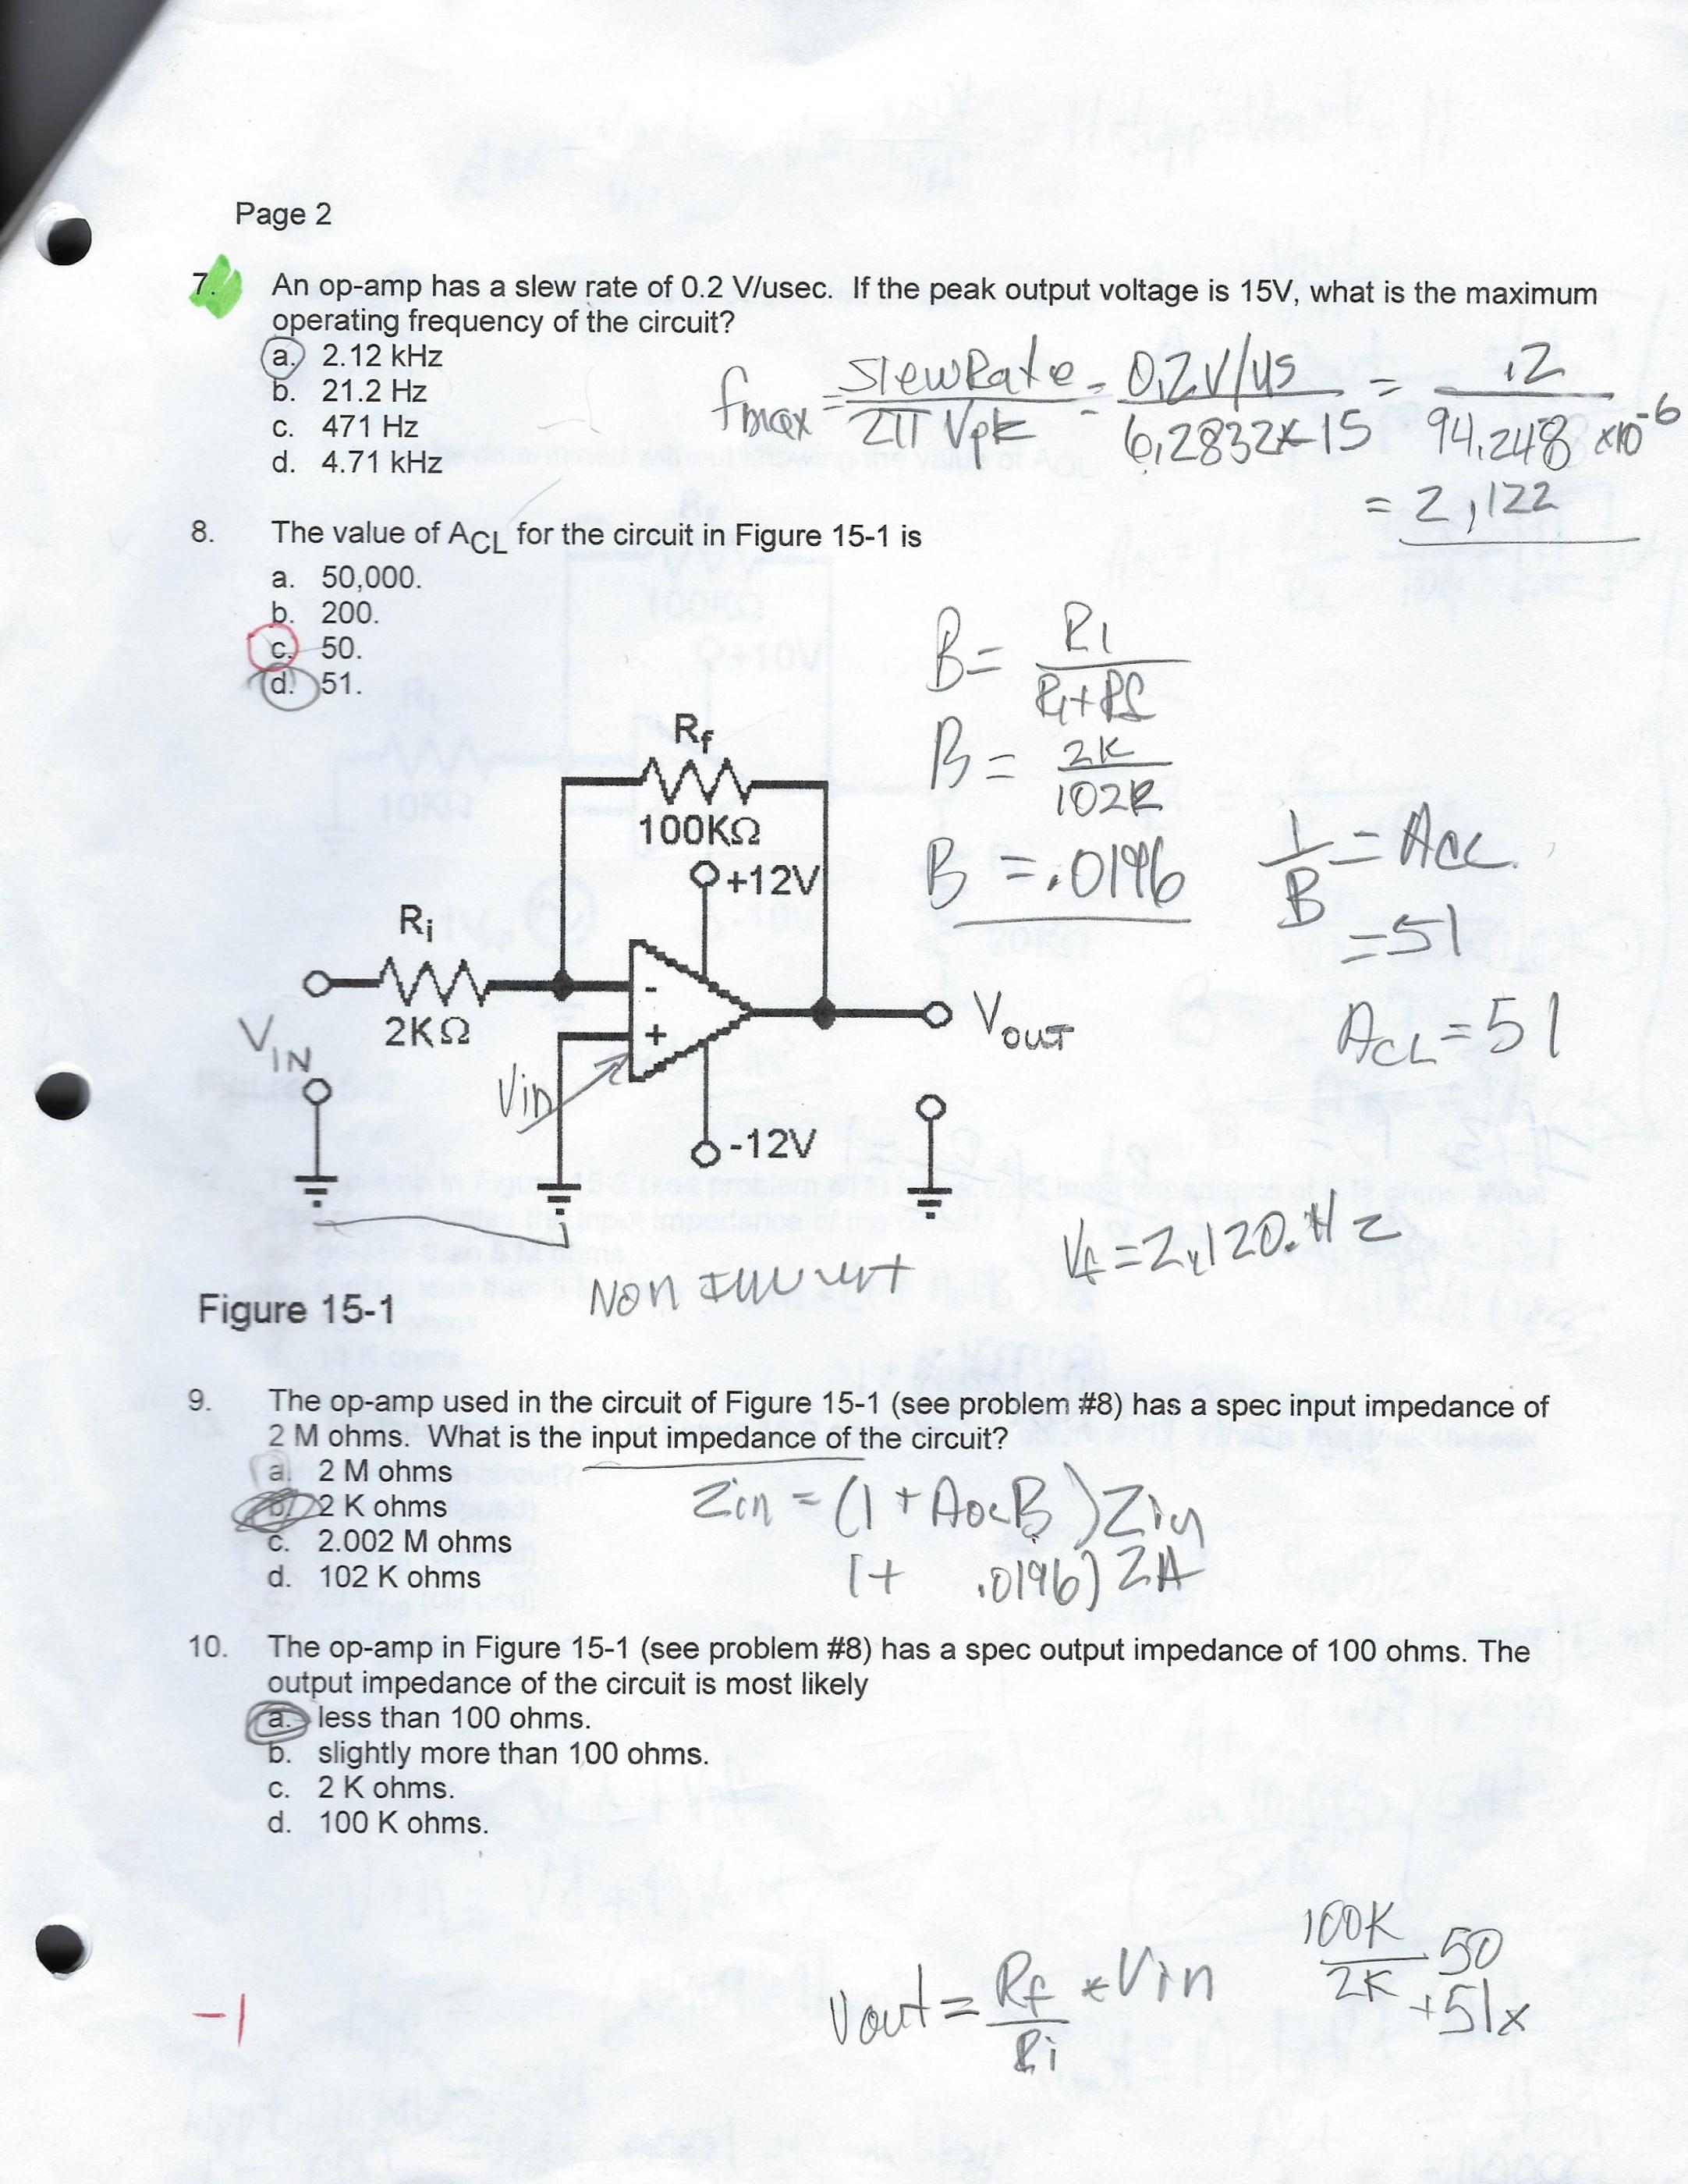 Page 2
7. An op-amp has a slew rate of 0.2 V/usec. If the peak output voltage is 15V, what is the maximum
operating frequency of the circuit?
a. 2.12 kHz
b. 21.2 Hz
c. 471 Hz
d. 4.71 kHz
fmax = Slew Rate / 2π Vpk = 0.2V/us / 6.2832 x 15 = .2 / 94.248 x10^-6
= 2,122
8. The value of ACL for the circuit in Figure 15-1 is
a. 50,000.
b. 200.
c. 50.
d. 51.
B = R1 / R1+Rf
B = 2K / 102K
B = .0196
1/B = ACL
= 51
ACL = 51
Rf
100KΩ
+12V
Ri
2KΩ
VIN
-
+
Vin
VOUT
-12V
Non Invert
= 2,120. Hz
Figure 15-1
9. The op-amp used in the circuit of Figure 15-1 (see problem #8) has a spec input impedance of
2 M ohms. What is the input impedance of the circuit?
a. 2 M ohms
b. 2 K ohms
c. 2.002 M ohms
d. 102 K ohms
Zin = (1 + AOLB) Zin
(1 + .0196)
10. The op-amp in Figure 15-1 (see problem #8) has a spec output impedance of 100 ohms. The
output impedance of the circuit is most likely
a. less than 100 ohms.
b. slightly more than 100 ohms.
c. 2 K ohms.
d. 100 K ohms.
-1
Vout = Rf / Ri * Vin
100K / 2K 50
+51x